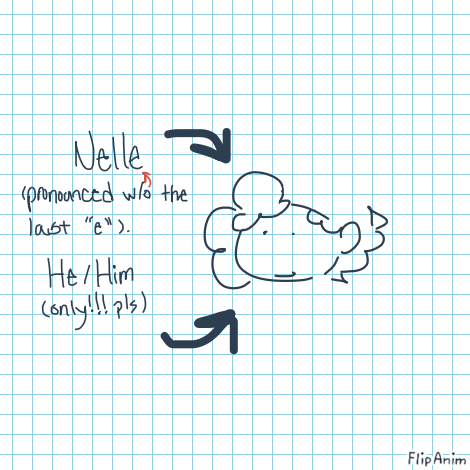 Nelle
(pronounced w/o the
last "e").
He/Him
(only!!! pls)
FlipAnim